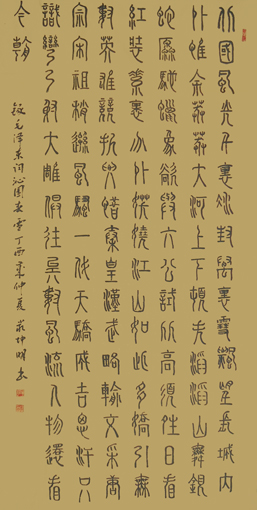 北國風光千里冰封萬里雪飄望長城內
外惟余莽莽大河上下頓失滔滔山舞銀
蛇原馳蠟象欲與天公試比高須晴日看
紅裝素裹分外妖嬈江山如此多嬌引無
數英雄競折腰惜秦皇漢武略輸文采唐
宗宋祖稍遜風騷一代天驕成吉思汗只
識彎弓射大雕俱往矣數風流人物還看
今朝
錄毛澤東詞沁園春雪丁酉年仲夏坤明書